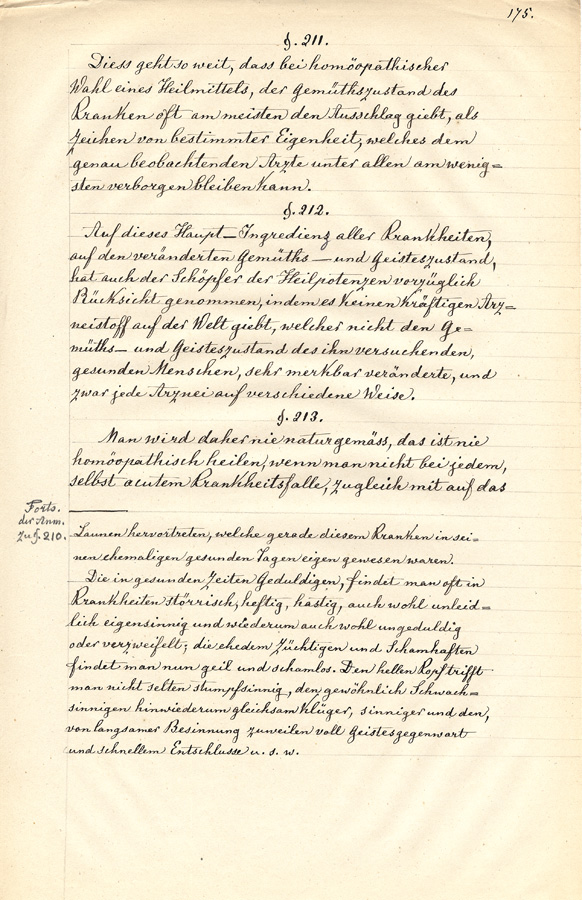 175.
§. 211.
Diess geht so weit, dass bei homöopathischer
Wahl eines Heilmittels, der Gemüthszustand des
Kranken oft am meisten den Ausschlag giebt, als
Zeichen von bestimmter Eigenheit, welches dem
genau beobachtenden Arzte unter allen am wenig=
sten verborgen bleiben kann.
§. 212.
Auf dieses Haupt-Ingredienz aller Krankheiten,
auf den veränderten Gemüths- und Geisteszustand,
hat auch der Schöpfer der Heilpotenzen vorzüglich
Rücksicht genommen, indem es keinen kräftigen Arz=
neistoff auf der Welt giebt, welcher nicht den Ge=
müths- und Geisteszustand des ihn versuchenden,
gesunden Menschen, sehr merkbar veränderte, und
zwar jede Arznei auf verschiedene Weise.
§. 213.
Man wird daher nie naturgemäss, das ist nie
homöopathisch heilen, wenn man nicht bei jedem,
selbst acutem Krankheitsfalle, zugleich mit auf das
Forts.
der Anm.
zu §. 210.
Launen hervortreten, welche gerade diesem Kranken in sei=
nen ehemaligen gesunden Tagen eigen gewesen waren.
Die in gesunden Zeiten Geduldigen, findet man oft in
Krankheiten störrisch, heftig, hastig, auch wohl unleid=
lich eigensinnig und wiederum auch wohl ungeduldig
oder verzweifelt; die ehedem Züchtigen und Schamhaften
findet man nun geil und schamlos. Den hellen Kopf trifft
man nicht selten stumpfsinnig, den gewöhnlich Schwach=
sinnigen hinwiederum gleichsam klüger, sinniger und den,
von langsamer Besinnung zuweilen voll Geistesgegenwart
und schnellem Entschlusse u. s. w.